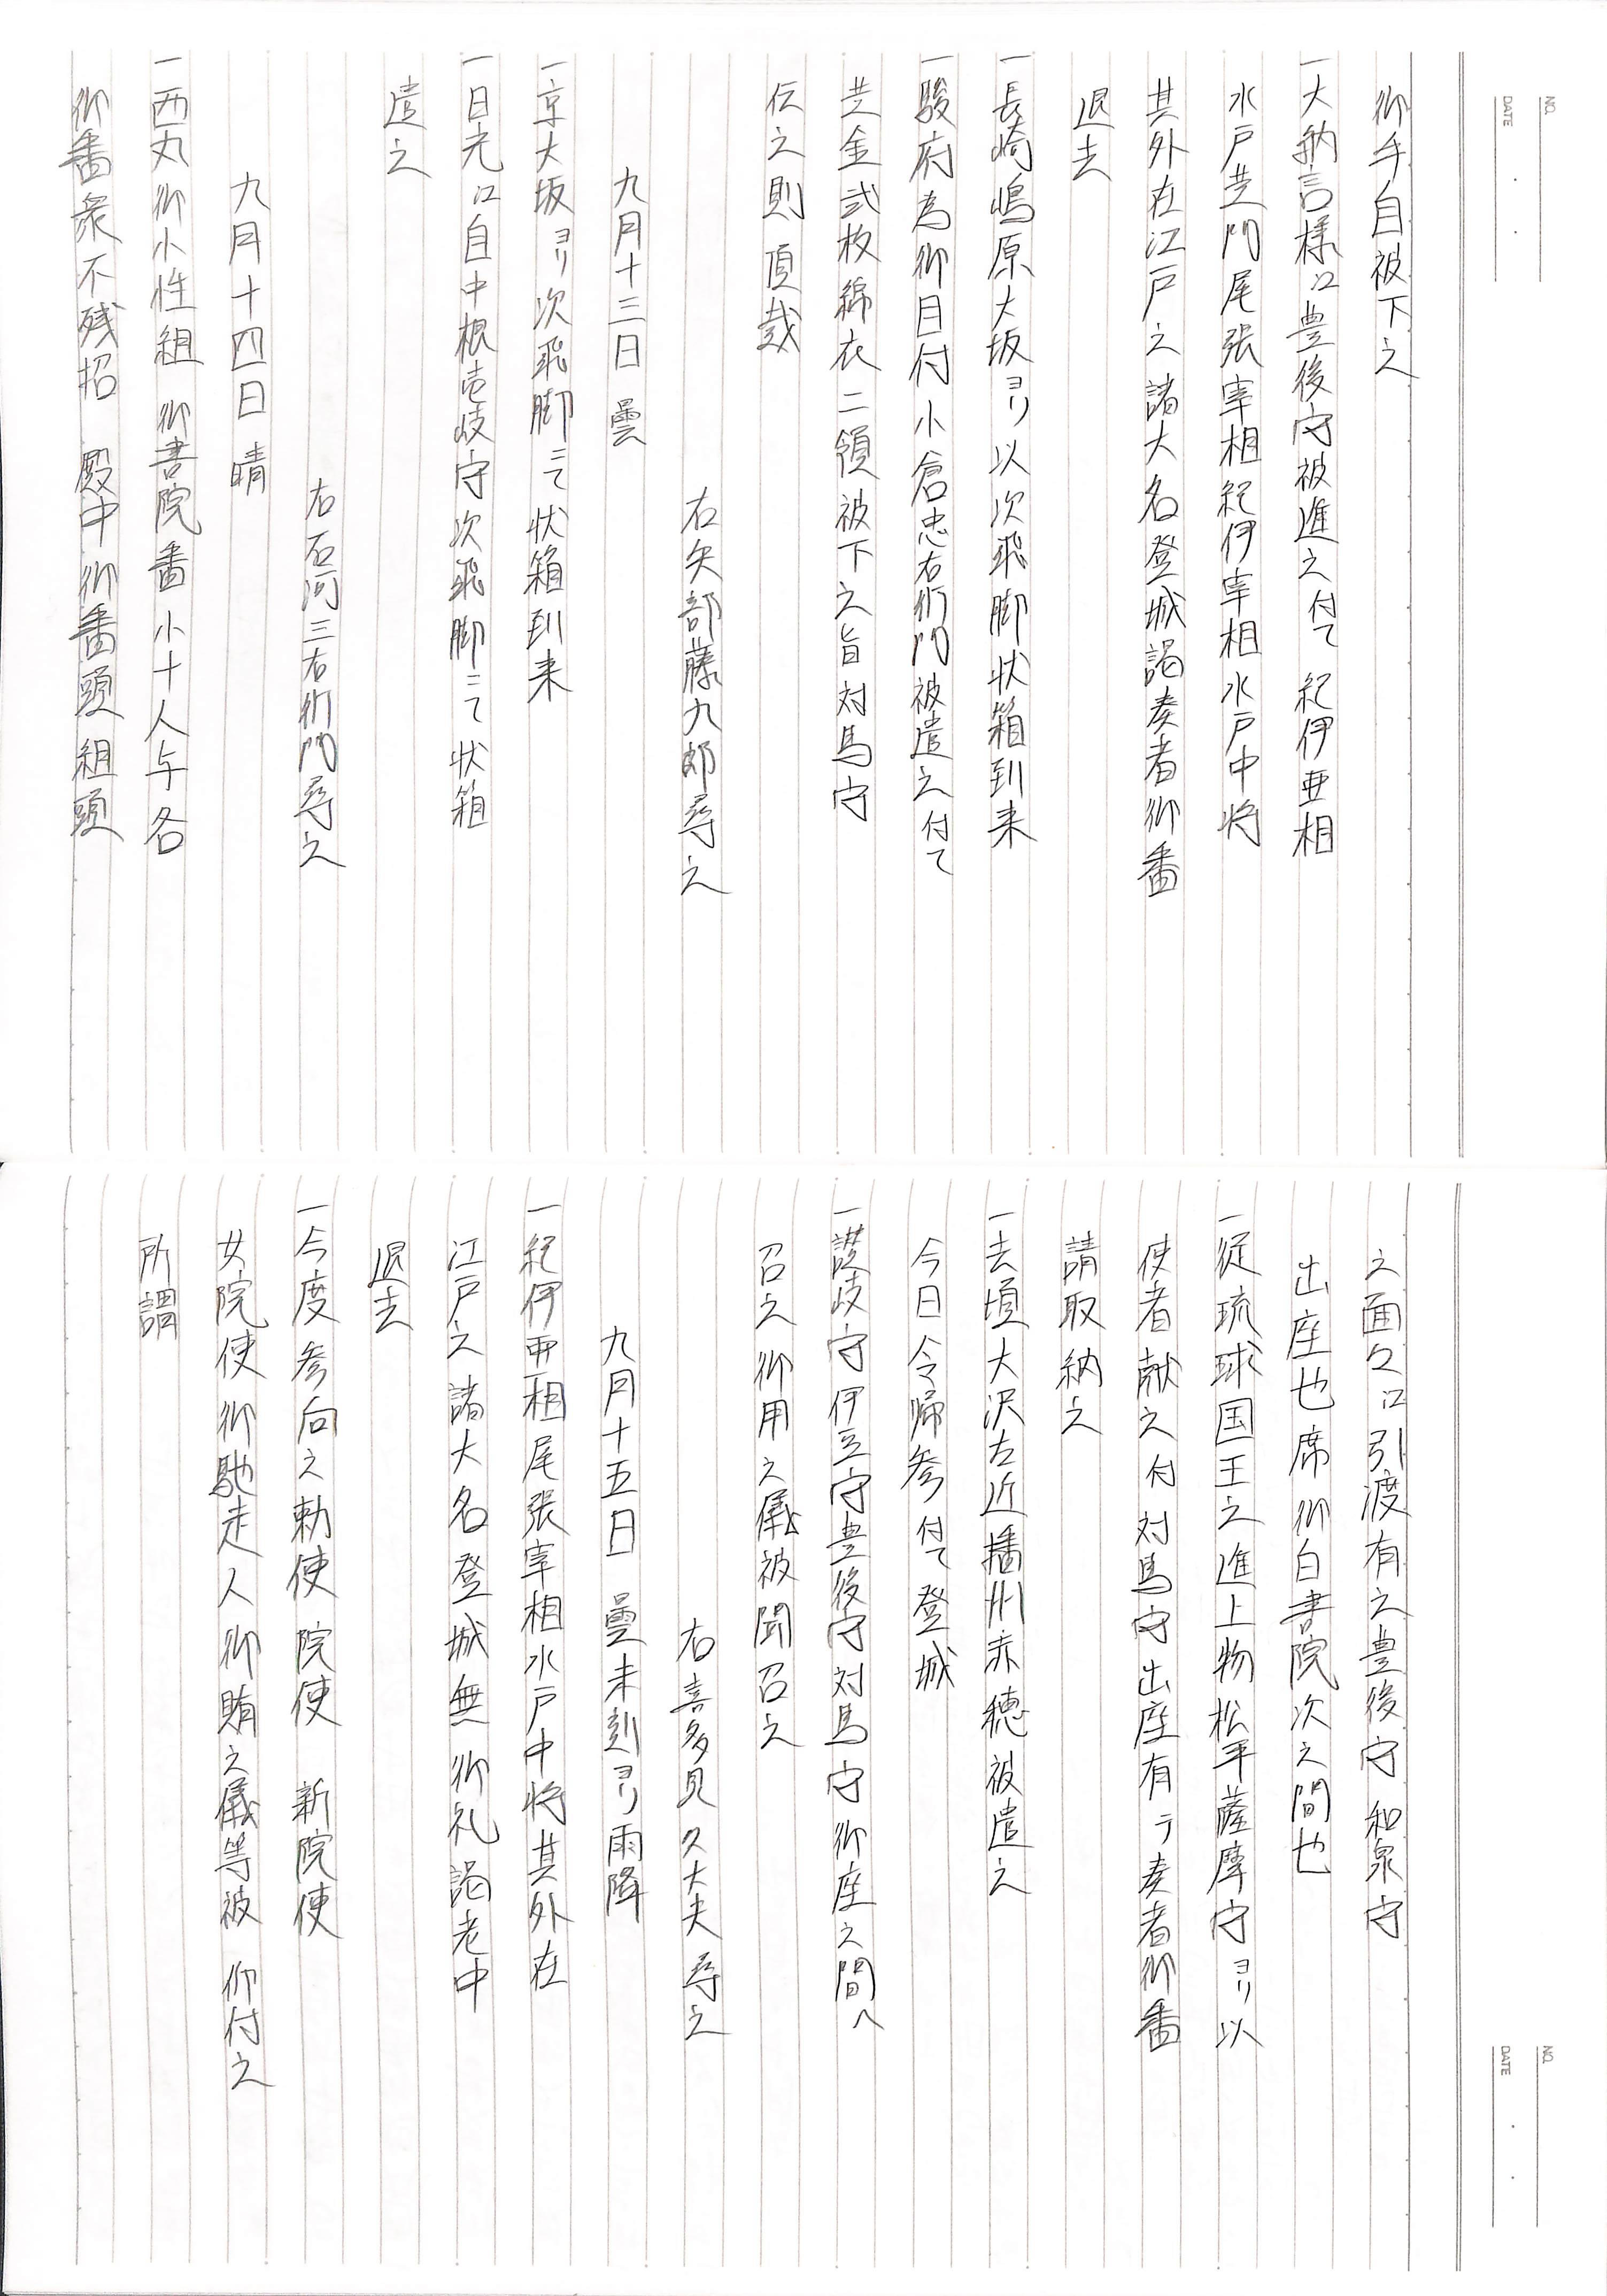 NO.
DATE
御手自被下之
一大納言様江豊後守被進之付て 紀伊亜相
水戸黄門尾張宰相紀伊宰相水戸中将
其外在江戸之諸大名登城謁奏者御番
退去
一長崎嶋原大坂ヨリ以次飛脚状箱到来
一駿府為御目付小倉忠右衛門被遣之付て
黄金弐枚綿衣二領被下之旨対馬守
伝之則頂戴
右矢部藤九郎尋之
九月十三日 曇
一京大坂ヨリ次飛脚ニて状箱到来
一日光江自中根壱岐守次飛脚ニて状箱
遣之
右石河三右衛門尋之
九月十四日 晴
一西丸御小性組 御書院番小十人与各
御番衆不残招 殿中御番頭組頭
NO.
DATE
之面々江引渡有之豊後守和泉守
出座也席御白書院次之間也
一従琉球国王之進上物松平薩摩守ヨリ以
使者献之付対馬守出座有テ奏者御番
請取納之
一去頃大沢右近播州赤穂被遣之
今日令帰参付て登城
一讃岐守伊豆守豊後守対馬守御座之間へ
召之御用之儀被聞召之
右喜多見久大夫尋之
九月十五日 曇未刻ヨリ雨降
一紀伊亜相尾張宰相水戸中将其外在
江戸之諸大名登城無御礼謁老中
退去
一今度参向之勅使 院使 新院使
女院使御馳走人御賄之儀等被 仰付之
所謂